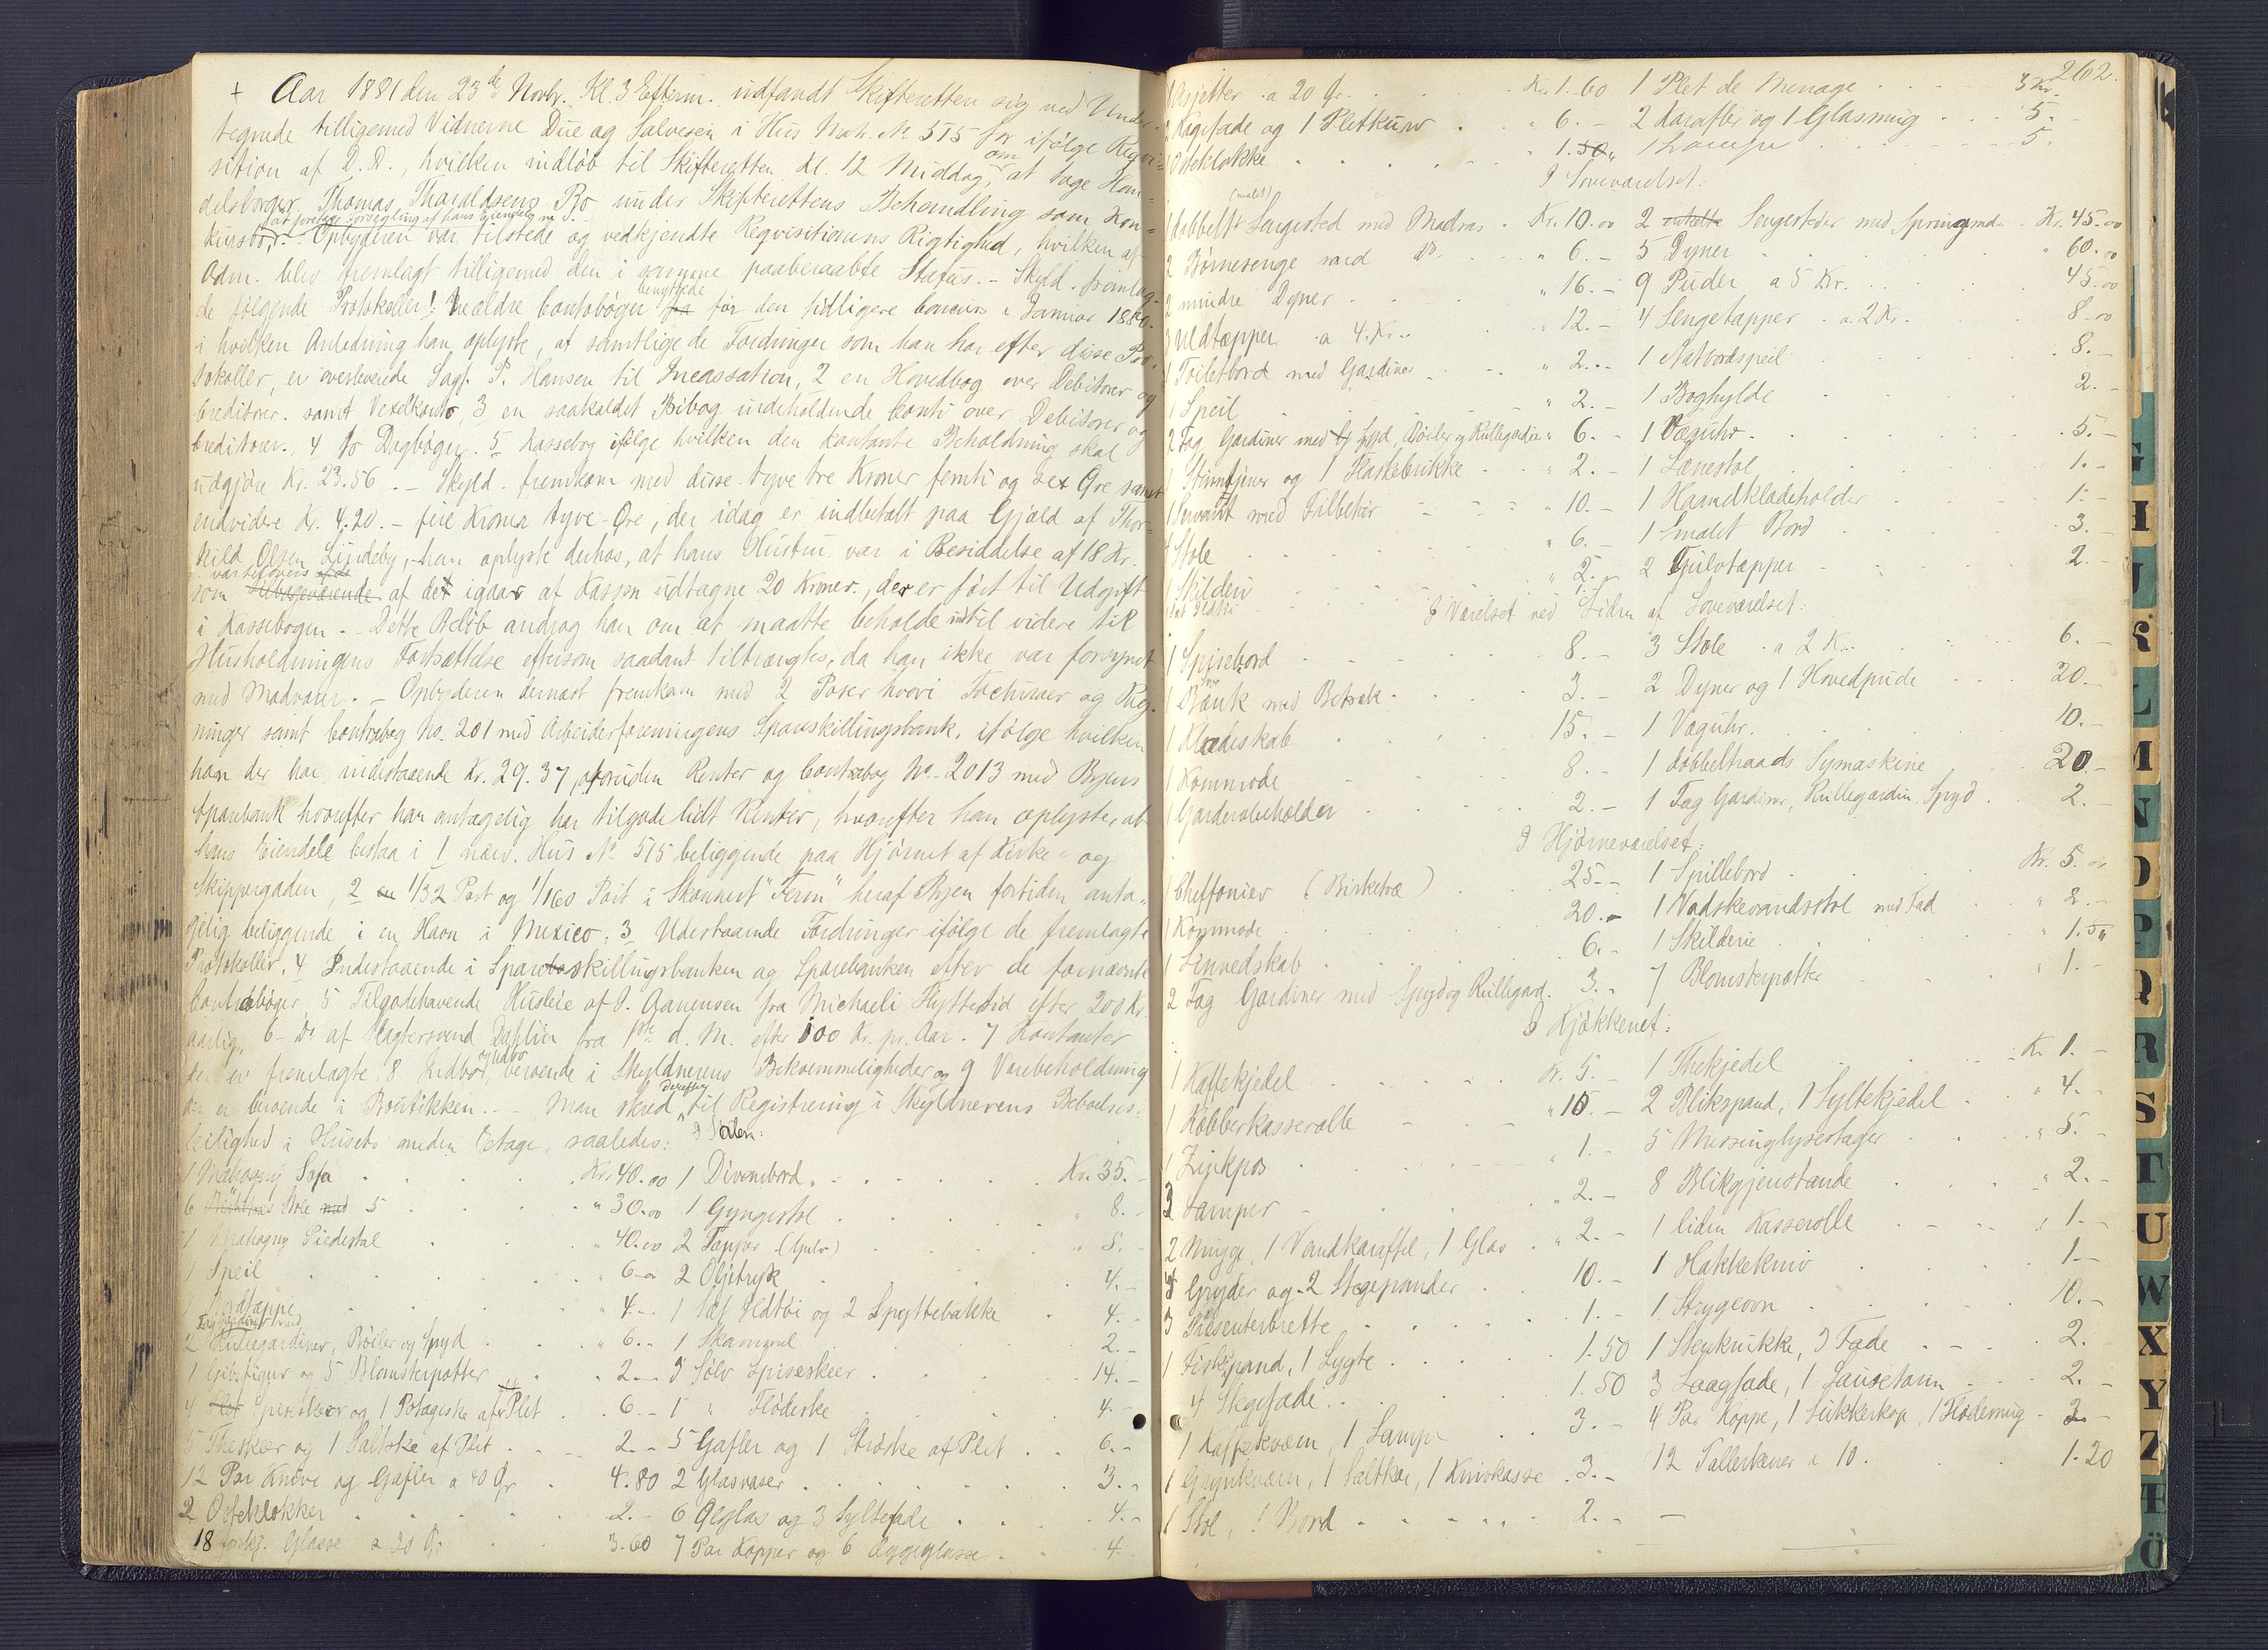 + Aar 1881 den 23de Novbr. Kl. 3 Efterm. indfandt Skifteretten sig ved Under-
tegnede tilligemed Vidnerne Due og Salvesen i Hus Matr. No 515 for ifølge Reqvi-
sition af D. D., hvilken indløb til Skifteretten Kl. 12 Middag, om at tage Han-
delsborger Thomas Tharaldsens Bo under Skifterettens Behandling som Kon-
kursbo, at foretage Forsegling af hans Eiendele m. v. - Opbyderen var tilstede og vedkjendte Reqvisitionens Rigtighed, hvilken af
Adm. blev fremlagt tilligemed den i samme paaberaabte Status. - Skyld. fremlag-
de følgende Protokoller: 1 ældre Contobøger benyttede før den tidligere Concurs i Januar 1880.
i hvilken Anledning han oplyste, at samtlige de Fordringer som han har efter disse Pro-
tokoller, er overleverede Sagf. P. Hansen til Incassation, 2 en Hovedbog over Debitorer og
Creditorer. samt Vexelkonto, 3 en saakaldet Bibog indeholdende Conti over Debitorer og
Creditorer. 4 to Dagbøger. 5 Kassebog ifølge hvilken den kontante Beholdning skal
udgjøre Kr. 23.56. - Skyld. fremkom med disse tyve tre Kroner femti og sex Øre samt
endvidere Kr. 4.20. - fire Kroner tyve Øre, der idag er indbetalt paa Gjæld af Thor-
kild Olsen Lindeby, han oplyste derhos, at hans Hustru var i Besiddelse af 18 Kr.
som var tilovers af det igaar af Kassen udtagne 20 Kroner, der er ført til Udgift
i Kassebogen. - Dette Beløb androg han om at maatte beholde indtil videre til
Husholdningens Fortsættelse eftersom saadant tiltrængtes, da han ikke var forsynet
med Madvarer. - Opbyderen dernæst fremkom med 2 Poser hvori Facturaer og Reg-
ninger samt Contrabog No. 201 med Arbeiderforeningens Spareskillingsbank, ifølge hvilken
han der har indestaaende Kr. 29.37, foruden Renter og Contrabog No. 2013 med Byens
Sparebank hvorefter han antagelig har tilgode lidt Renter, hvorefter han oplyste, at
hans Eiendele bestaa i 1 nærv. Hus No 515 beliggende paa Hjørnet af Kirke- og
Skippergaden, 2 1/32 Part og 1/160 Part i Skonnert "Ferm" heraf Byen fortiden anta-
gelig beliggende i en Havn i Mexico, 3 Udestaaende Fordringer ifølge de fremlagte
Protokoller, 4 Indestaaende i Spareskillingsbanken og Sparebanken efter de fornævnte
Contrabøger, 5 Tilgodehavende Husleie af J. Aanensen fra Michaeli Flyttetid efter 200 Kr.
aarlig, 6 - Do af Slagtersvend Dahlin fra 1ste d. M. efter 100 Kr. pr. Aar. 7 Kontanter
der er fremlagte, 8 Indbo og Udbo beroende i Skyldnerens Bekvemmeligheder og 9 Varebeholdning
der er beroende i Boutikken. - Man skred derefter til Registrering i Skyldnerens Beboelses-
leilighed i Husets meden Etage, saaledes: I Salen:
1 Mahogny Sofa . . . Kr. 40.00 1 Divanbord . . . Kr. 35.-
6 Stole 5 . . . " 30.00 1 Gyngestol . . . " 8.-
1 Mahogny Piedestal . . " 40.00 2 Tæpper (Gulv) . . " 5.-
1 Speil . . . " 6.- 2 Oljetryk . . . 4.-
1 Bordtæppe . . . " 4.- 1 Sæt Ildtøi og 2 Spyttebakke . 4.-
2 Fag Gardiner med Rullegardiner, Bøiler og Spyd . . " 6.- 1 Skammel . . . 2.-
1 Gibsfigur og 5 Blomsterpotter . . 2.- 3 Sølv Spiseskeer . . . 14.-
4 Spiseskeer og 1 Potageske af Plet . . 6.- 1 " Flødeske . . . 4.-
5 Theskeer og 1 Saltske af Plet . . 2.- 5 Gafler og 1 Strøske af Plet . . 6.-
12 Par Knive og Gafler a 40 Ør . . 4.80 2 Glasvaser . . . 3.-
2 Osteklokker . . . 2.- 6 Ølglas og 3 Syltefade . . . 4.-
18 forskj. Glasse a 20 Ør . . 3.60 7 Par Kopper og 6 Æggeglasse . . 4.-
262.
Asjetter a 20 Ør. . . . Kr. 1.60 1 Plet de Menage . . . 3 Kr.
2 Kagefade og 1 Pletkurv . . " 6.- 2 Karafler og 1 Glasmug . . . 5.-
1 Osteklokke . . . " 1.50 1 Lampe . . . 5.
I Soveværelset:
1 dobbelt (malet) Sengested med Madras . Kr. 10.00 2 enkelte Sengesteder med Springmad. . Kr. 45.00
2 Børnesenge med do. . . " 6.- 5 Dyner . . . " 60.00
2 mindre Dyner . . . " 16.- 9 Puder a 5 Kr. . . . 45.00
3 Uldtæpper a 4 Kr. . . " 12.- 4 Sengetæpper a 2 Kr. . . . 8.00
1 Toiletbord med Gardiner . . " 2.- 1 Natbordspeil . . . 8.-
1 Speil . . . " 2.- 1 Boghylde . . . 2.-
2 Fag Gardiner med Spyd, Bøiler og Rullegardin " 6.- 1 Væguhr . . . 5.-
1 Stumtjener og 1 Flaskebrikke . . " 2.- 1 Lænestol . . . 1.-
1 Servant med Tilbehør . . " 10.- 1 Haandklædeholder . . . 1.-
4 Stole . . . " 6.- 1 malet Bord . . . 3.
1 Skilderi . . . " 2.- 2 Gulvtæpper . . . 2.-
I Værelset ved Siden af Soveværelset:
1 Spisebord . . . 8.- 3 Stole a 2 Kr. . . 6.-
1 Bænk med Betræk . . . 3.- 2 Dyner og 1 Hovedpude . . . 20.-
1 Klædeskab . . . 15.- 1 Væguhr . . . 10.-
1 Kommode . . . 8.- 1 dobbeltraads Symaskine . . 20.-
1 Garderobeholder . . . 2.- 1 Fag Gardiner, Rullegardin, Spyd . 2.-
I Hjørneværelset:
1 Cheffonier (Birketræ) . . 25.- 1 Spillebord . . . Kr. 5.00
1 Kommode . . . 20.- 1 Vadskevandsstol med Fad . . " 2.-
1 Linnedskab . . . 6.- 1 Skilderie . . . " 1.50
2 Fag Gardiner med Spyd og Rullegard. 3.- 7 Blomsterpotter . . . " 1.-
I Kjøkkenet:
1 Kaffekjedel . . . Kr. 5.- 1 Thekjedel . . . Kr. 1.-
1 Kobberkasserolle . . . " 10.- 2 Blikspand, 1 Syltekjedel . . " 4.-
1 Zinkpøs . . . " 1.- 5 Messinglysestager . . . " 5.-
3 Lamper . . . " 2.- 8 Blikgjenstande . . . " 2.-
2 Mugge, 1 Vandkaraffel, 1 Glas . " 2.- 1 liden Kasserolle . . . 1.-
8 Gryder og 2 Stegepander . . 10.- 1 Hakkekniv . . . 1.-
3 Præsenterbrette . . . 1.- 1 Strygeovn . . . 10.-
1 Fiskespand, 1 Lygte . . . 1.50 1 Stenkrukke, 3 Fade . . . 2.-
4 Stegefade . . . 1.50 3 Laagfade, 1 Sauseterrin . . . 2.-
1 Kaffekværn, 1 Lampe . . 3.- 4 Par Koppe, 1 Sukkerkop, 1 Flødemug . 3.-
1 Grynkværn, 1 Saltkar, 1 Knivkasse . 3.- 12 Tallerkener a 10. . . 1.20
1 Stol, 1 Bord . . . 2.-
G
H
I
J
K
L
M
N
O
P
Q
R
S
T
U
W
X
Y
Z
Æ
Ö